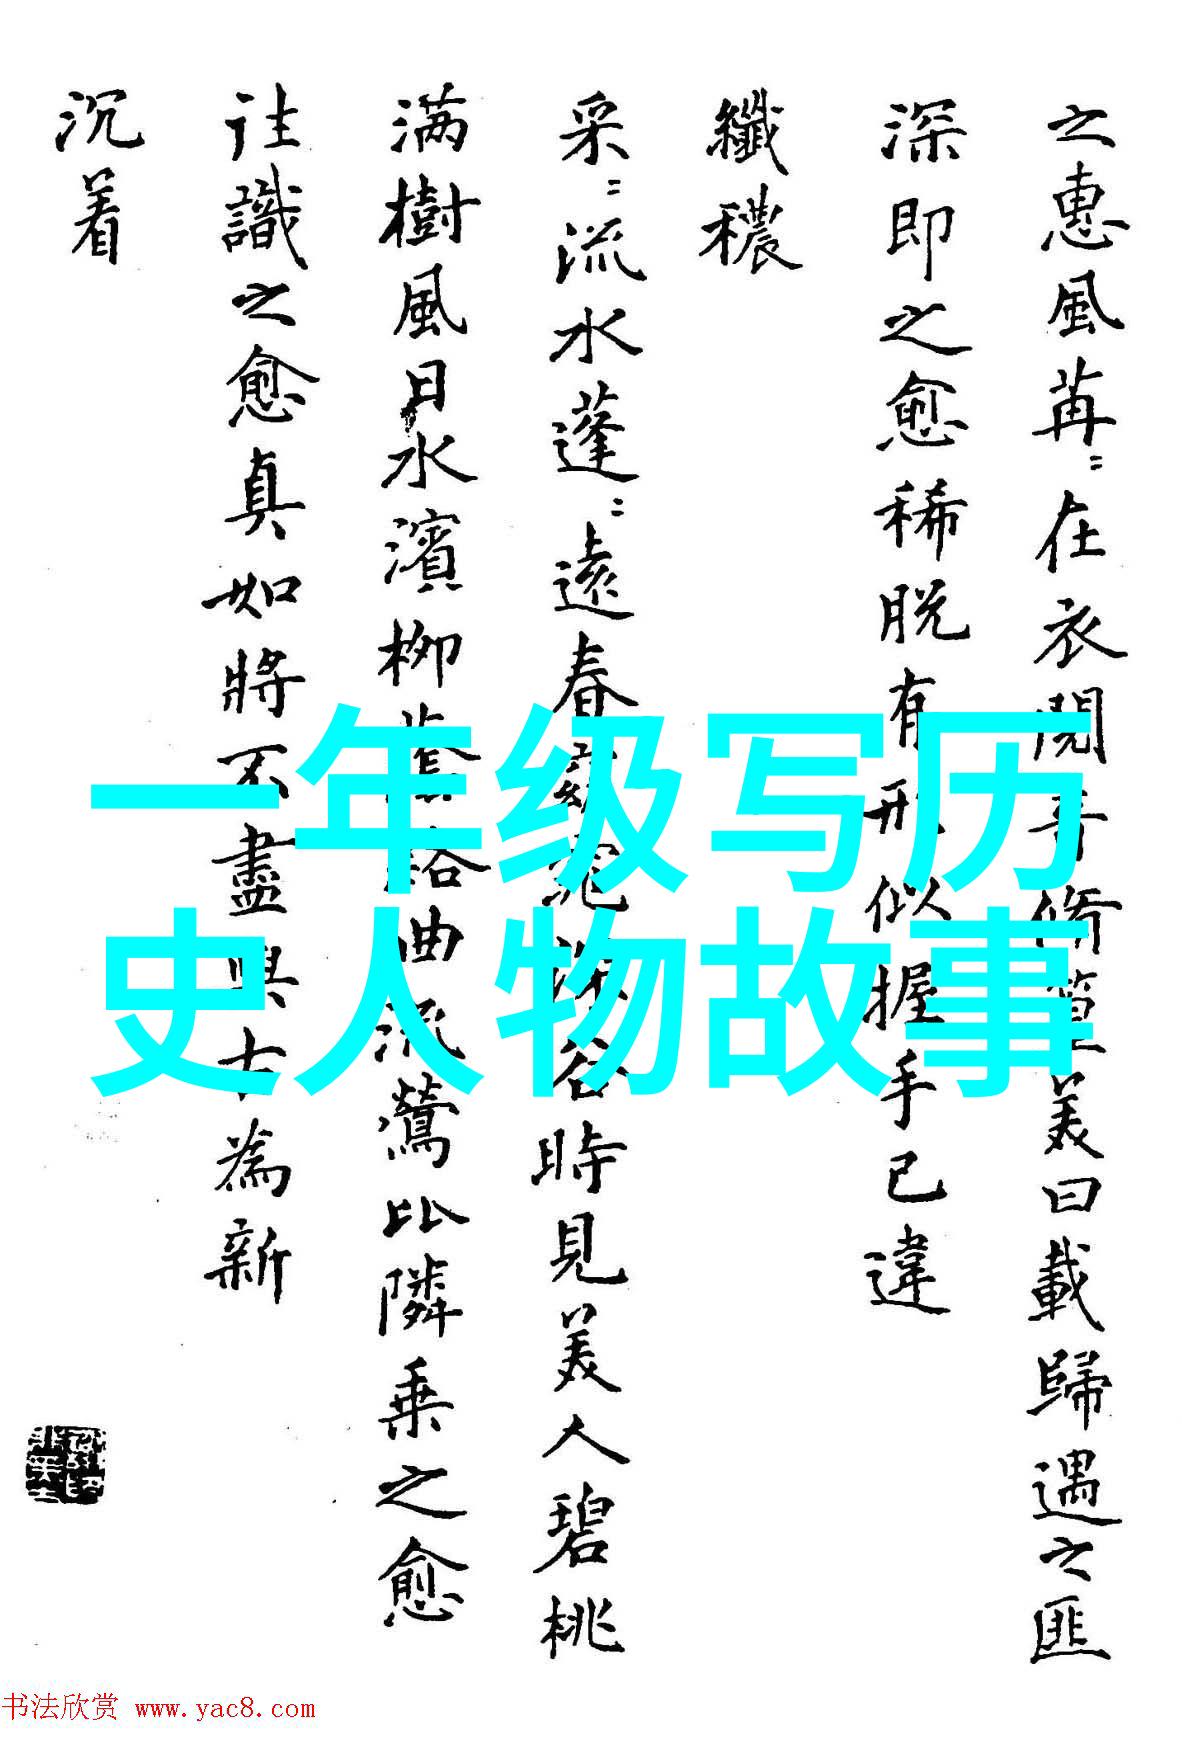 之惠風苒〻在衣閱音脩篁美曰載歸遇之匪
深即之愈稀脱有形似握手已違
纖穠
采〻流水蓬〻遠春窈窕深谷時見美人碧桃
满樹風日水濱柳蔭路曲流鶯比隣乗之愈
往識之愈真如將不盡與古為新
沉着
一年级写历
史人物故事
书法欣赏 www.yac8.com